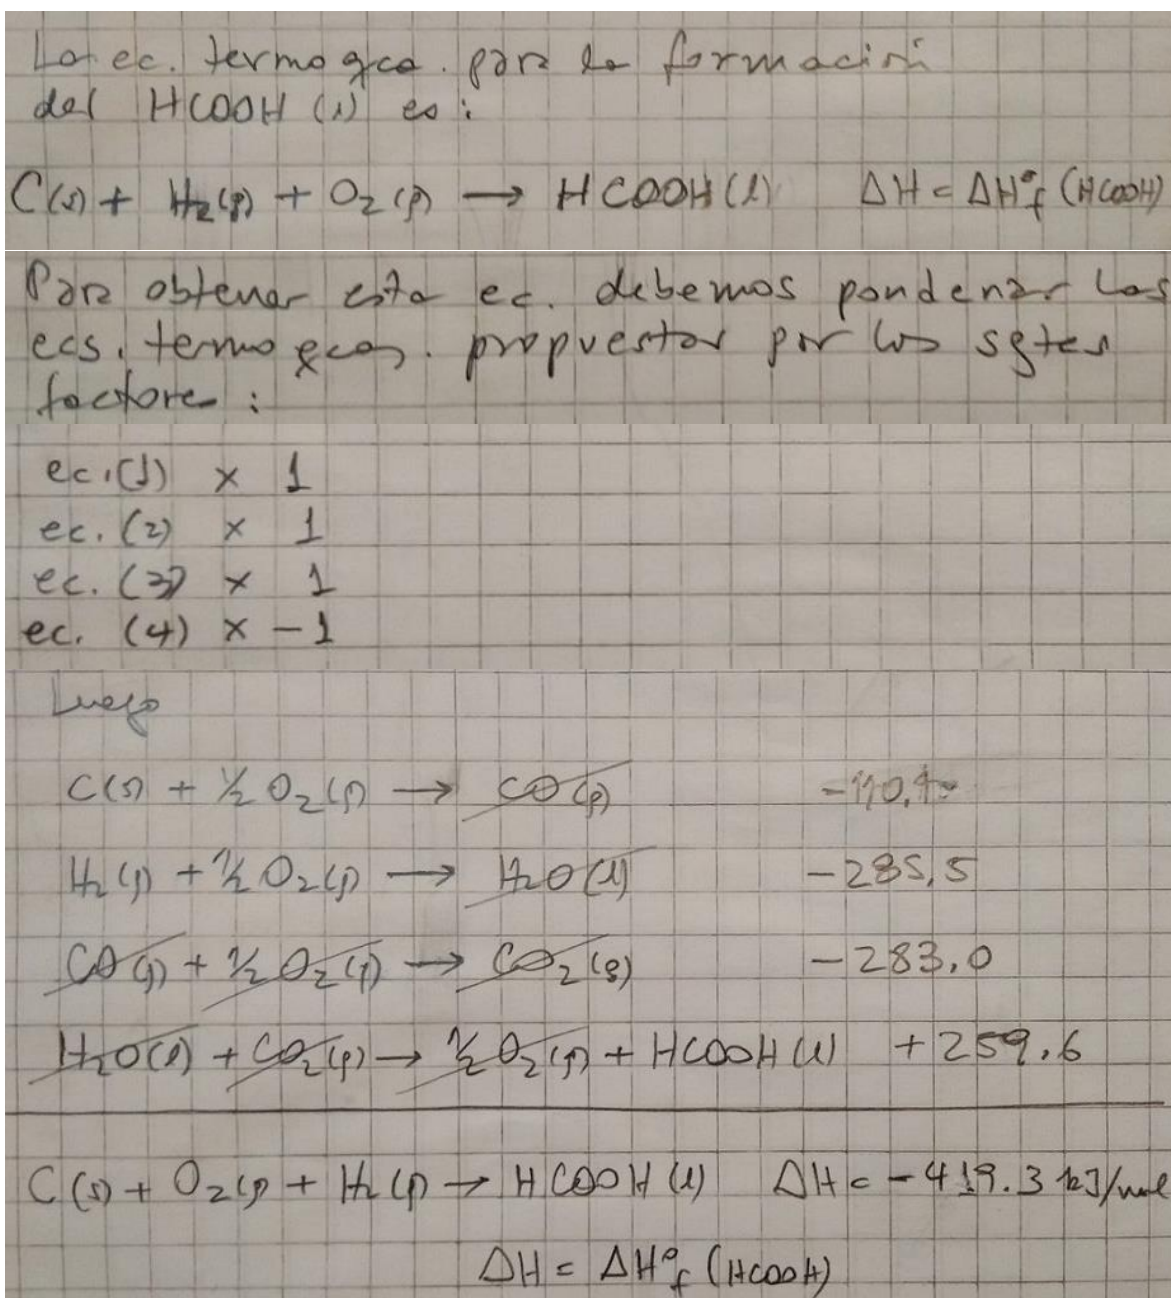 La ec. termoqca. para la formación
del HCOOH (l) es:
C(s) + H₂(g) + O₂(g) → HCOOH(l) ΔH = ΔH°f (HCOOH)
Para obtener esta ec. debemos ponderar las
ecs. termoqcas. propuestas por los sgtes
factores:
ec. (1) x 1
ec. (2) x 1
ec. (3) x 1
ec. (4) x -1
Luego
C(s) + ½ O₂(g) → CO(g) -110,4
H₂(g) + ½ O₂(g) → H₂O(l) -285,5
CO(g) + ½ O₂(g) → CO₂(g) -283,0
H₂O(l) + CO₂(g) → ½ O₂(g) + HCOOH(l) +259.6
C(s) + O₂(g) + H₂(g) → HCOOH(l) ΔH = -419.3 kJ/mol
ΔH = ΔH°f (HCOOH)